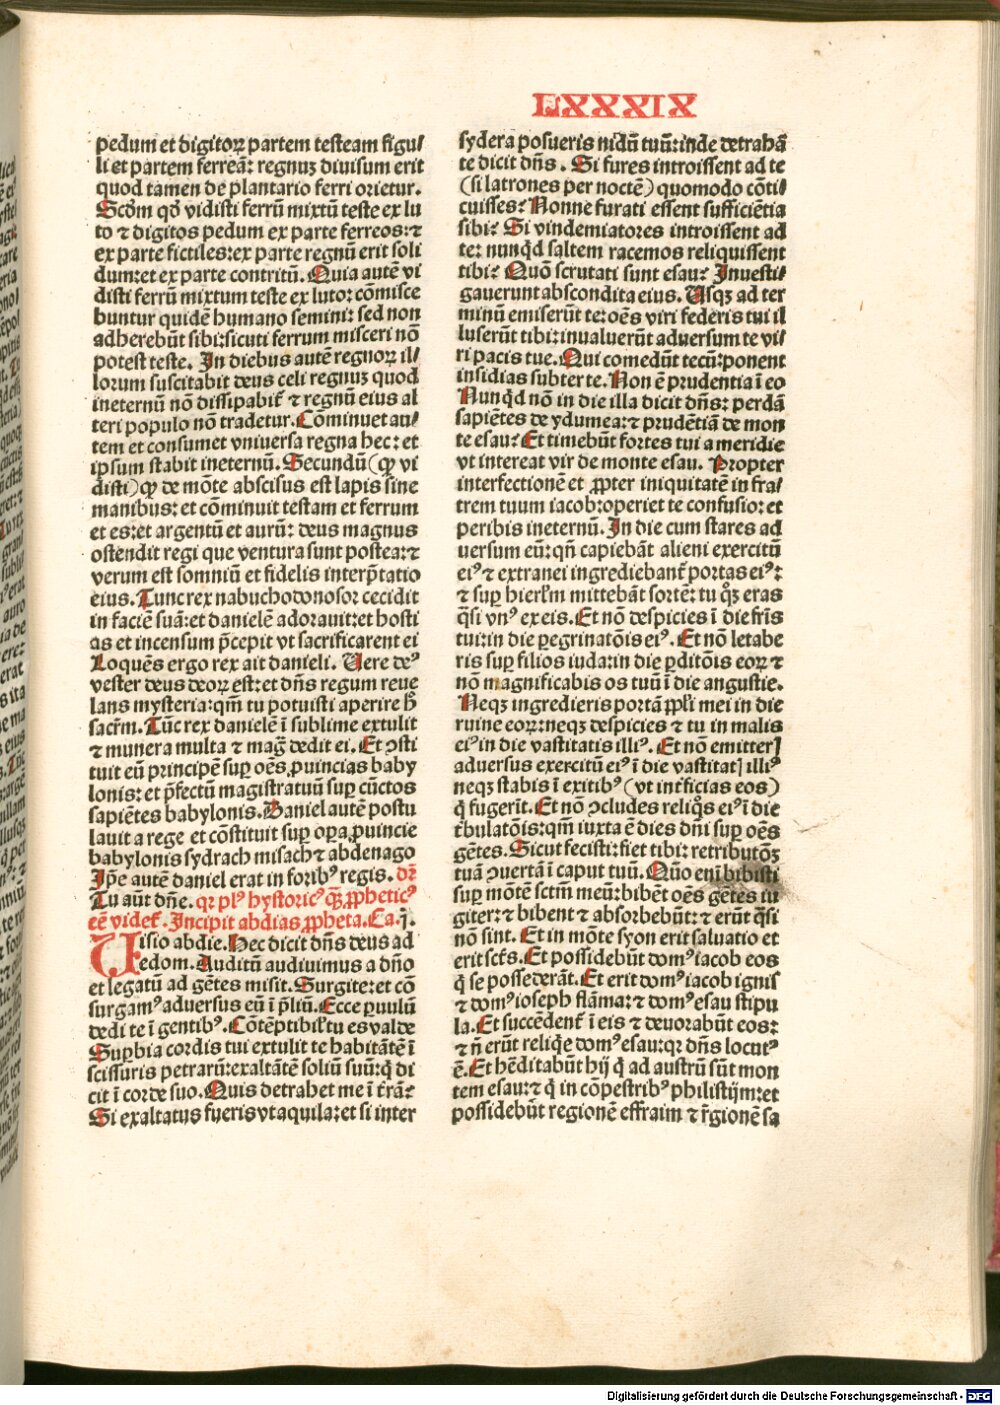 LXXXIX
pedum et digitoꝝ partem testeam figu⸗
li et partem ferreā: regnuꝫ diuisum erit
quod tamen de plantario ferri orietur.
Scd̄m qd̄ vidisti ferrū mixtū teste ex lu
to ⁊ digitos pedum ex parte ferreos: ⁊
ex parte fictiles: ex parte regnū erit soli
dum: et ex parte contritū. Quia autē vi
disti ferrū mixtum teste ex luto: cōmisce
buntur quidē humano semini: sed non
adherebūt sibi: sicuti ferrum misceri nō
potest teste. In diebus autē regnoꝝ il⸗
lorum suscitabit deus celi regnuꝫ quod
ineternū nō dissipabit̄ ⁊ regnū eius al
teri populo nō tradetur. Cōminuet au⸗
tem et consumet vniuersa regna hec: et
ipsum stabit ineternū. Secundū (ꝙ vi
disti) ꝙ de mōte abscisus est lapis sine
manibus: et cōminuit testam et ferrum
et es: et argentū et aurū: deus magnus
ostendit regi que ventura sunt postea: ⁊
verum est somniū et fidelis interp̄tatio
eius. Tunc rex nabuchodonosor cecidit
in faciē suā: et danielē adorauit: et hosti
as et incensum p̄cepit vt sacrificarent ei
Loquēs ergo rex ait danieli. Uere deꝰ
vester deus deoꝝ est: et dn̄s regum reue
lans mysteria: qm̄ tu potuisti aperire h̄
sacr̄m. Tūc rex danielē ī sublime extulit
⁊ munera multa ⁊ maḡ dedit ei. Et ꝯsti
tuit eū principē suꝑ oēs ꝓuincias baby
lonis: et p̄fectū magistratuū suꝑ cūctos
sapiētes babylonis. Daniel autē postu
lauit a rege et cōstituit suꝑ oꝑa ꝓuincie
babylonis sydrach misach ⁊ abdenago
Ip̄e autē daniel erat in foribꝰ regis. dꝝ
Tu aūt dn̄e. qꝛ plꝰ hystoricꝰ qꝫ̄ ꝓpheticꝰ
eē videt̄. Incipit abdias ꝓpheta. Ca. j.
Uisio abdie. Hec dicit dn̄s deus ad
edom. Auditū audiuimus a dn̄o
et legatū ad gētes misit. Surgite: et cō
surgamꝰ aduersus eū ī p̄liū. Ecce ꝑuulū
dedi te ī gentibꝰ. Cōtēptibil̄ tu es valde
Suꝑbia cordis tui extulit te habitātē ī
scissuris petrarū: exaltātē soliū suū: q̄ di
cit ī corde suo. Quis detrahet me ī t̄rā?
Si exaltatus fueris vt aquila: et si inter
sydera posueris nidū tuū: inde detrahā
te dicit dn̄s. Si fures introissent ad te
(si latrones per noctē) quomodo cōti⸗
cuisses? Nonne furati essent sufficiētia
sibi? Si vindemiatores introissent ad
te: nunq̇d saltem racemos reliquissent
tibi? Quō scrutati sunt esau? Inuesti⸗
gauerunt abscondita eius. Usqꝫ ad ter
minū emiserūt te: oēs viri federis tui il
luserūt tibi: inualuerūt aduersum te vi⸗
ri pacis tue. Qui comedūt tecū: ponent
insidias subter te. Non ē prudentia ī eo
Nunq̇d nō in die illa dicit dn̄s: perdā
sapiētes de ydumea: ⁊ prudētiā de mon
te esau? Et timebūt fortes tui a meridie
vt intereat vir de monte esau. Propter
interfectionē et ꝓpter iniquitatē in fra⸗
trem tuum iacob: operiet te confusio: et
peribis ineternū. In die cum stares ad
uersum eū: qn̄ capiebāt alieni exercitū
eiꝰ ⁊ extranei ingrediebant̄ portas eiꝰ:
⁊ suꝑ hierl̄m mittebāt sortē: tu q̇ꝫ eras
q̄si vnꝰ ex eis. Et nō despicies ī die fr̄is
tui: in die ꝑegrinatōis eiꝰ. Et nō letabe
ris suꝑ filios iuda: in die ꝑditōis eoꝝ ⁊
nō magnificabis os tuū ī die angustie.
Neqꝫ ingredieris portā ꝓpl̄i mei in die
ruine eoꝝ: neqꝫ despicies ⁊ tu in malis
eiꝰ in die vastitatis illiꝰ. Et nō emitterꝭ
aduersus exercitū eiꝰ ī die vastitatꝭ illiꝰ
neqꝫ stabis ī exitibꝰ (vt int̄ficias eos)
q̇ fugerīt. Et nō ꝯcludes reliq̇s eiꝰ ī die
t̄bulatōis: qm̄ iuxta ē dies dn̄i suꝑ oēs
gētes. Sicut fecisti: fiet tibi: retributōꝫ
tuā ꝯuertā ī caput tuū. Quō enī bibisti
suꝑ mōtē sctm̄ meū: bibēt oēs gētes iu
giter: ⁊ bibent ⁊ absorbebūt: ⁊ erūt q̄si
nō sint. Et in mōte syon erit saluatio et
erit sct̄s. Et possidebūt domꝰ iacob eos
q̇ se possederāt. Et erit domꝰ iacob ignis
⁊ domꝰ ioseph flāma: ⁊ domꝰ esau stipu
la. Et succēdent̄ ī eis ⁊ deuorabūt eos:
⁊ n̄ erūt reliq̇e domꝰ esau: qꝛ dn̄s locutꝰ
ē. Et hēditabūt hij q̇ ad austrū sūt mon
tem esau: ⁊ q̇ in cōpestribꝰ philistijm: et
possidebūt regionē effraim ⁊ r̄gionē sa
Digitalisierung gefördert durch die Deutsche Forschungsgemeinschaft - DFG